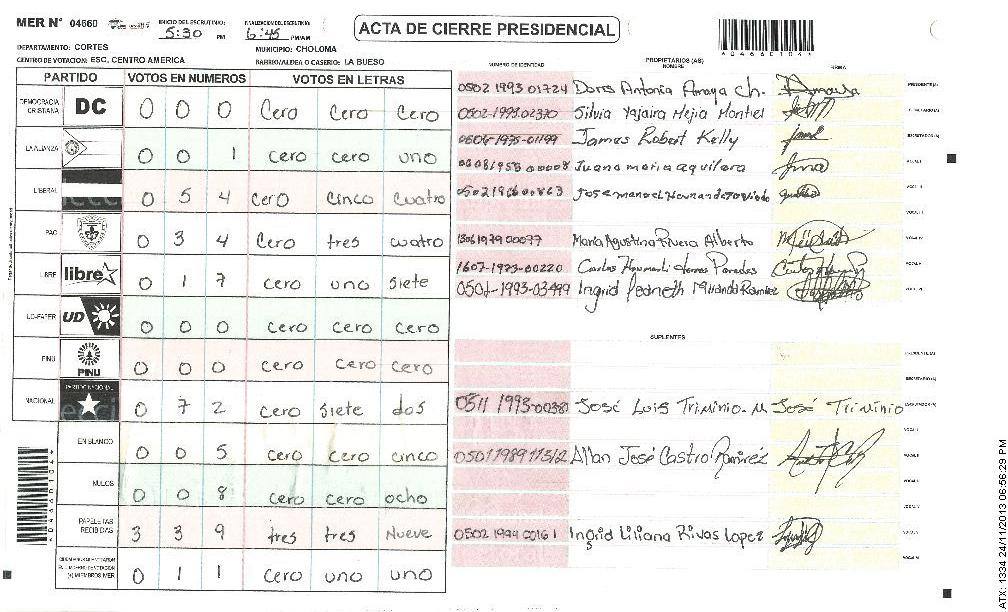 MER N° 04660
INICIO DEL ESCRUTINIO: 5:30 PM
FINALIZACION DEL ESCRUTINIO: 6:45 PM/AM
ACTA DE CIERRE PRESIDENCIAL
04660104
DEPARTAMENTO: CORTES
MUNICIPIO: CHOLOMA
CENTRO DE VOTACION: ESC. CENTRO AMERICA
BARRIO/ALDEA O CASERIO: LA BUESO
PARTIDO VOTOS EN NUMEROS VOTOS EN LETRAS
DEMOCRACIA CRISTIANA DC 0 0 0 Cero Cero Cero
LA ALIANZA 0 0 1 cero cero uno
LIBERAL 0 5 4 cero cinco cuatro
PAC 0 3 4 Cero tres cuatro
LIBRE libre 0 1 7 cero uno siete
UD-FAPER UD 0 0 0 cero cero cero
PINU PINU 0 0 0 cero cero cero
NACIONAL PARTIDO NACIONAL 0 7 2 cero siete dos
EN BLANCO 0 0 5 cero cero cinco
NULOS 0 0 8 cero cero ocho
PAPELETAS RECIBIDAS 3 3 9 tres tres Nueve
(+) MIEMBROS MER 0 1 1 cero uno uno
NUMERO DE IDENTIDAD PROPIETARIOS (AS) NOMBRE FIRMA
0502 1993 01724 Doris Antonia Amaya Ch. PRESIDENTE(A)
0502-1993-02370 Silvia Yajaira Mejia Montiel SECRETARIO(A)
0606-1975-01199 James Robert Kelly ESCRUTADOR(A)
06081955 00008 Juana maria aquilera VOCAL I
0502196600863 Jose manoel Hernandez VOCAL II
VOCAL III
1306 1979 00077 Maria Agustina Rivera Alberto VOCAL IV
1607-1973-00220 Carlos Paredes VOCAL V
0501-1993-03499 Ingrid Jeaneth Miranda Ramirez VOCAL VI
SUPLENTES
PRESIDENTE(A)
SECRETARIO(A)
0511 1993-00380 José Luis Triminio. M José Triminio ESCRUTADOR(A)
VOCAL I
0501198911312 Allan José Castro Ramirez VOCAL II
VOCAL III
VOCAL IV
0502 1994 00161 Ingrid Liliana Rivas Lopez VOCAL V
VOCAL VI
04660104
ATX: 1334 24/11/2013 06:56:29 PM